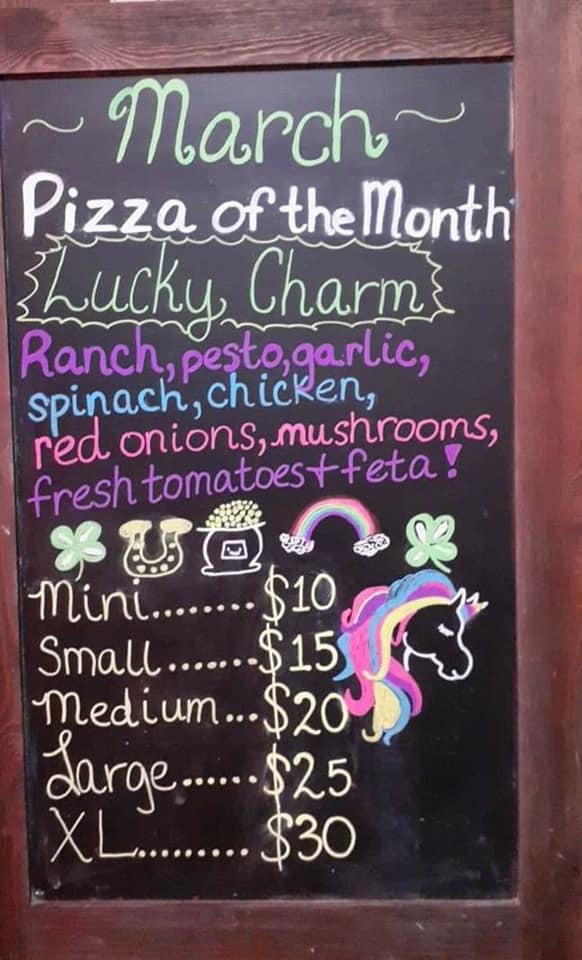 ~ March ~
Pizza of the Month
Lucky Charm
Ranch, pesto, garlic,
spinach, chicken,
red onions, mushrooms,
fresh tomatoes + feta!
Mini........$10
Small.......$15
Medium...$20
Large......$25
XL.........$30